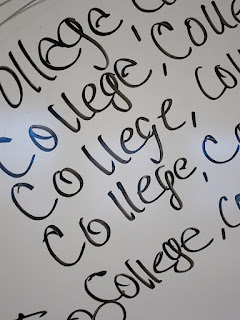 ollege, Co
College, Colle
College, Col
College, Co
College, Co